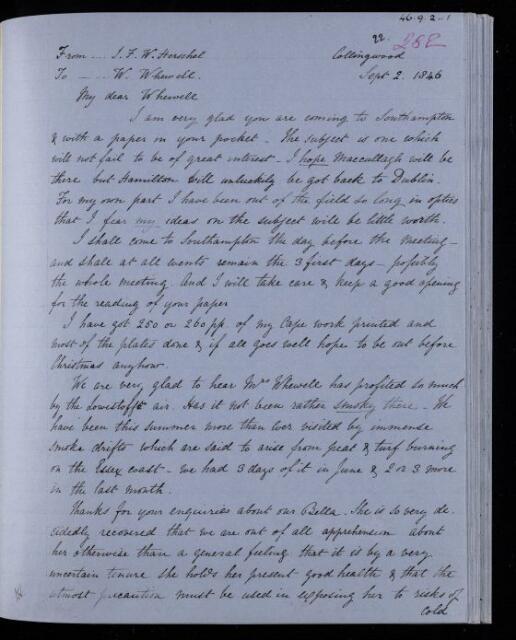 46.9.2-1
22. 252
From ... J. F. W. Herschel Collingwood
To - ... W. Whewell. Sept 2. 1846
My dear Whewell
I am very glad you are coming to Southampton
& with a paper in your pocket - The subject is one which
will not fail to be of great interest - I hope Maccullagh will be
there but Hamilton will unluckily be got back to Dublin.
For my own part I have been out of the field so long in optics
that I fear my ideas on the subject will be little worth.
I shall come to Southampton the day before the Meeting -
and shall at all events remain the 3 first days - possibly
the whole meeting. And I will take care to keep a good opening
for the reading of your paper
I have got 250 or 260 pp. of my Cape work printed and
most of the plates done & if all goes well hope to be out before
Christmas anyhow
We are very glad to hear Mrs Whewell has profited so much
by the Lowestofft air. Has it not been rather smoky there - We
have been this summer more than ever visited by immense
smoke drifts which are said to arise from peat & turf burning
on the Essex coast - we had 3 days of it in June & 2 or 3 more
in the last month.
Thanks for your enquiries about our Bella. She is so very de-
cidedly recovered that we are out of all apprehension about
her otherwise than a general feeling that it is by a very
uncertain tenure she holds her present good health & that the
utmost precaution must be used in exposing her to risks of
cold